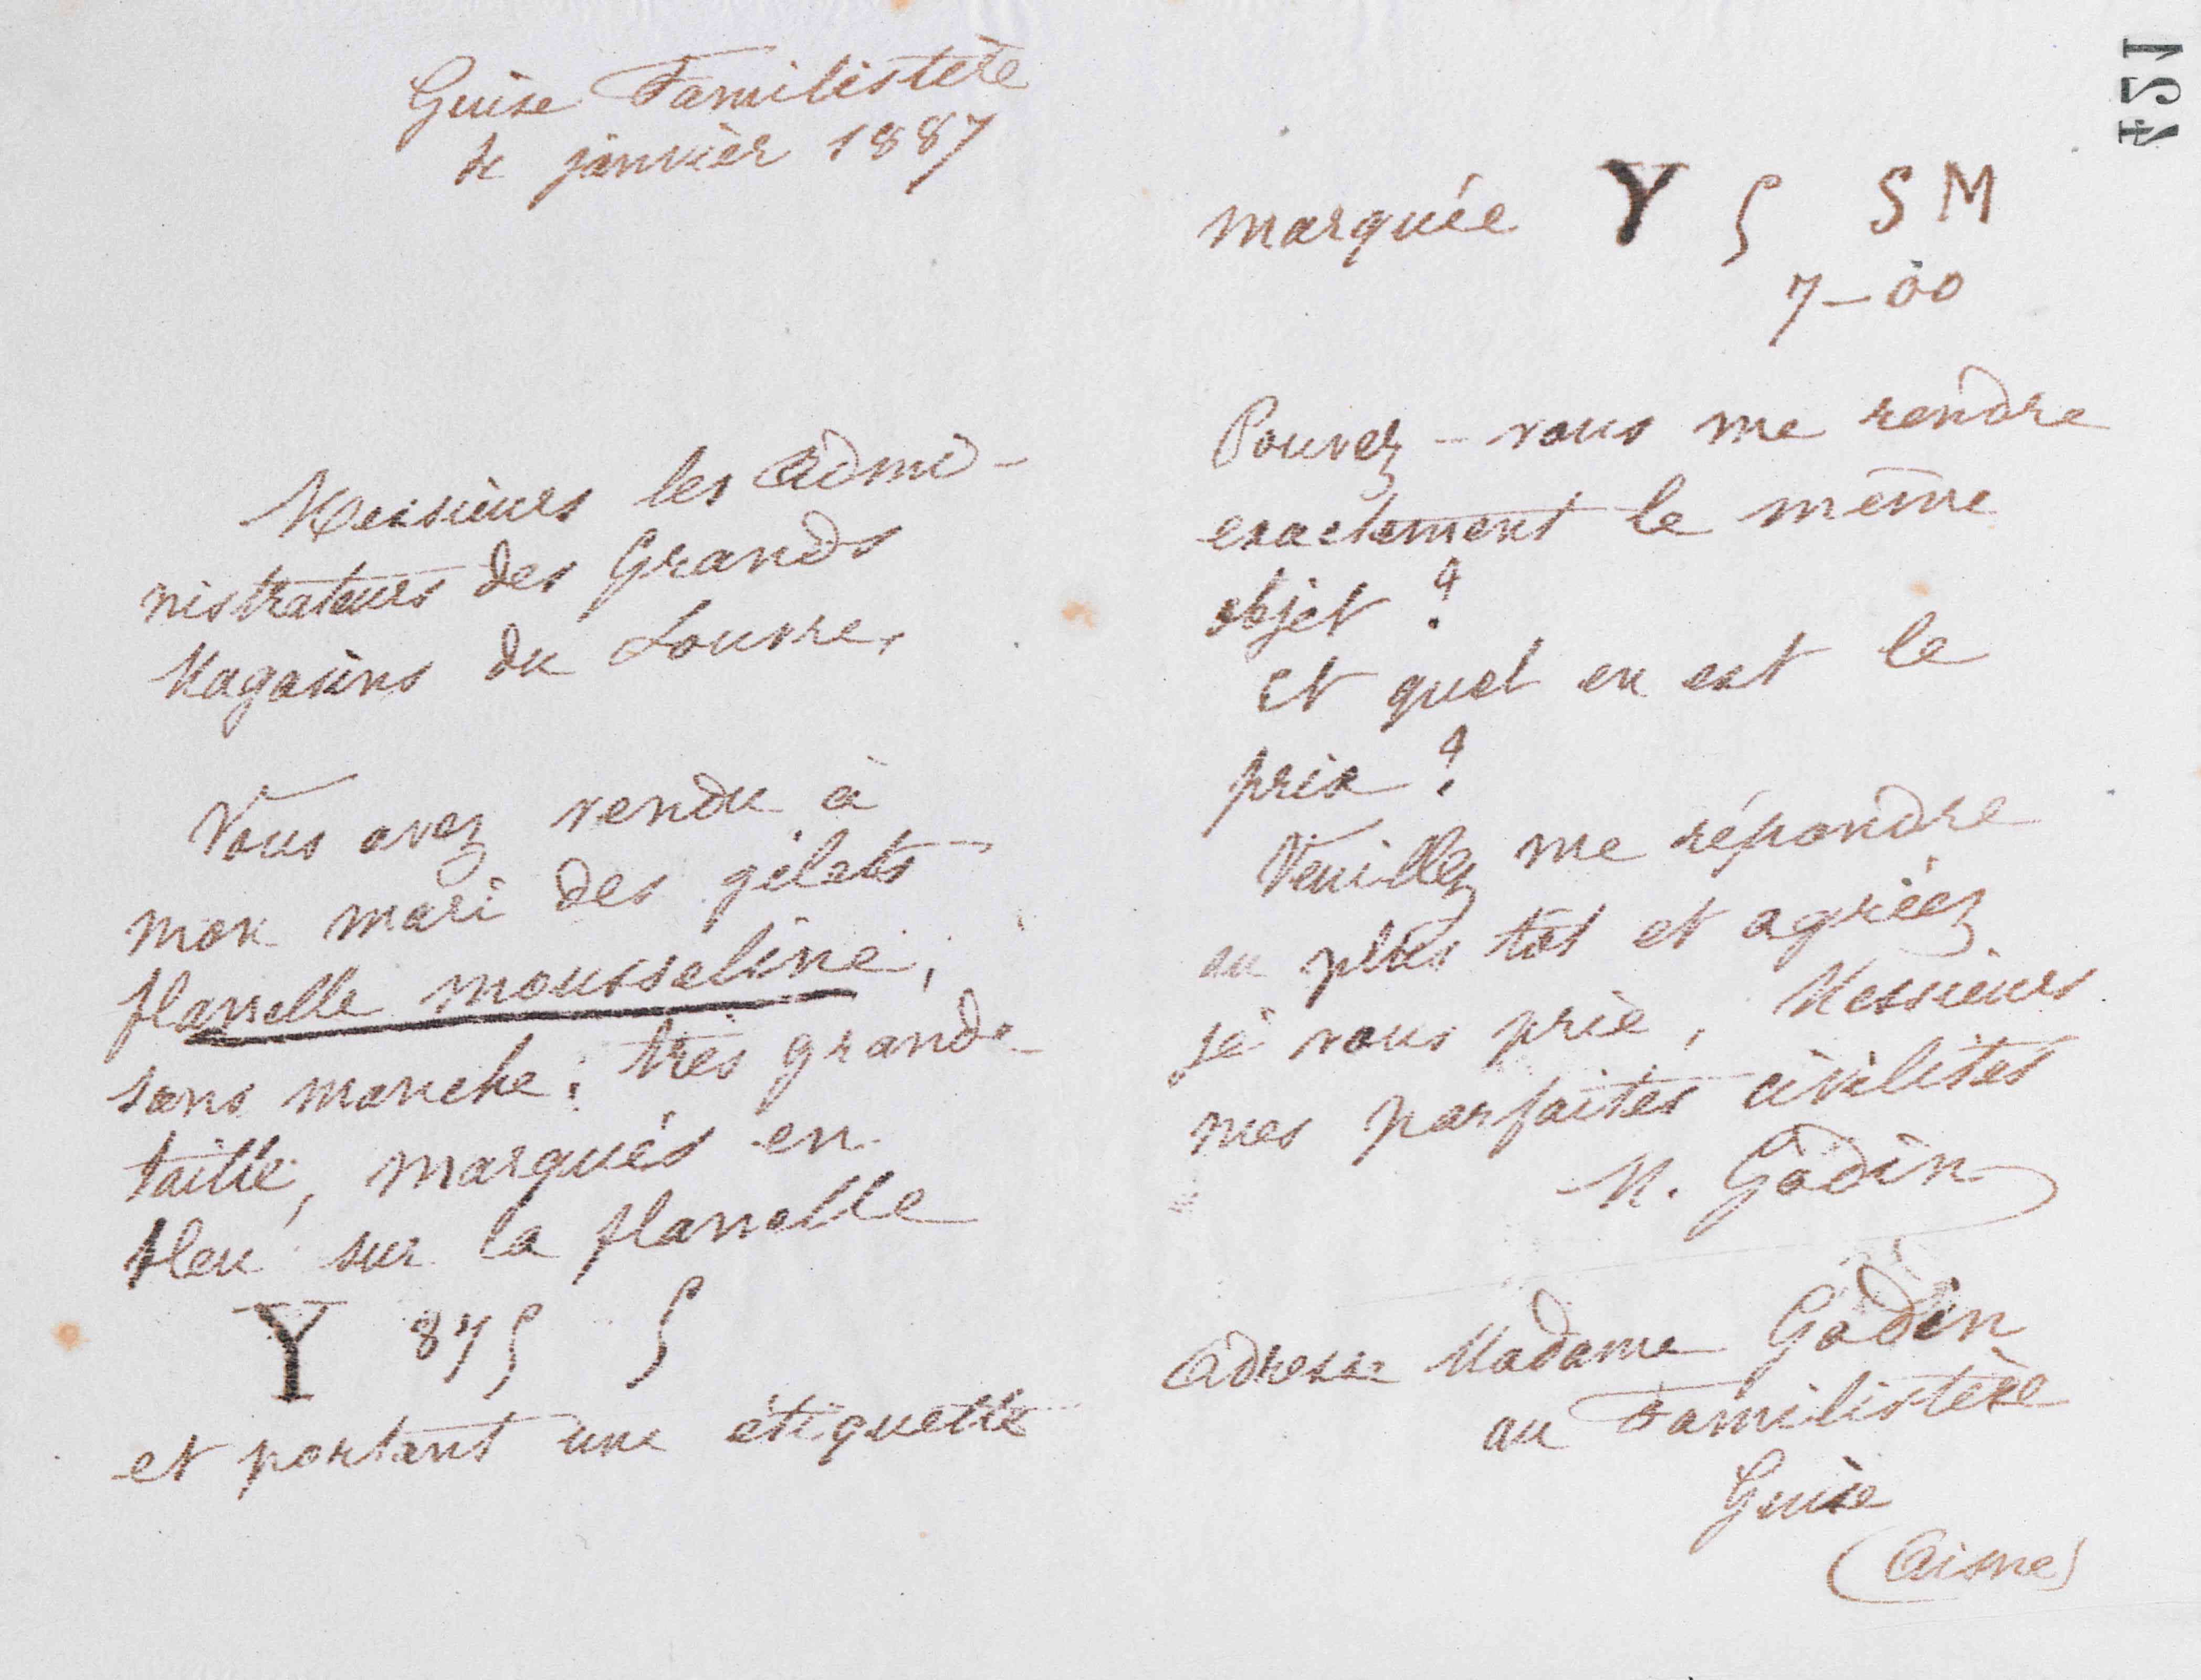 Guise Familistère
4 janvier 1887
Messieurs les admi-
nistrateurs des Grands
Magasins du Louvre,
Vous avez vendu à
mon mari des gilets
flanelle mousseline,
sans manche; très grande
taille, marqués en
bleu sur la flanelle
Y 87 S S
et portant une étiquette
marquée Y S SM
7-00
Pouvez-vous me rendre
exactement le même
objet ?
Et quel en est le
prix ?
Veuillez me répondre
au plus tôt et agréez
je vous prie, Messieurs
mes parfaites civilités
M. Godin
Adresse Madame Godin
au Familistère
Guise
(Aisne)